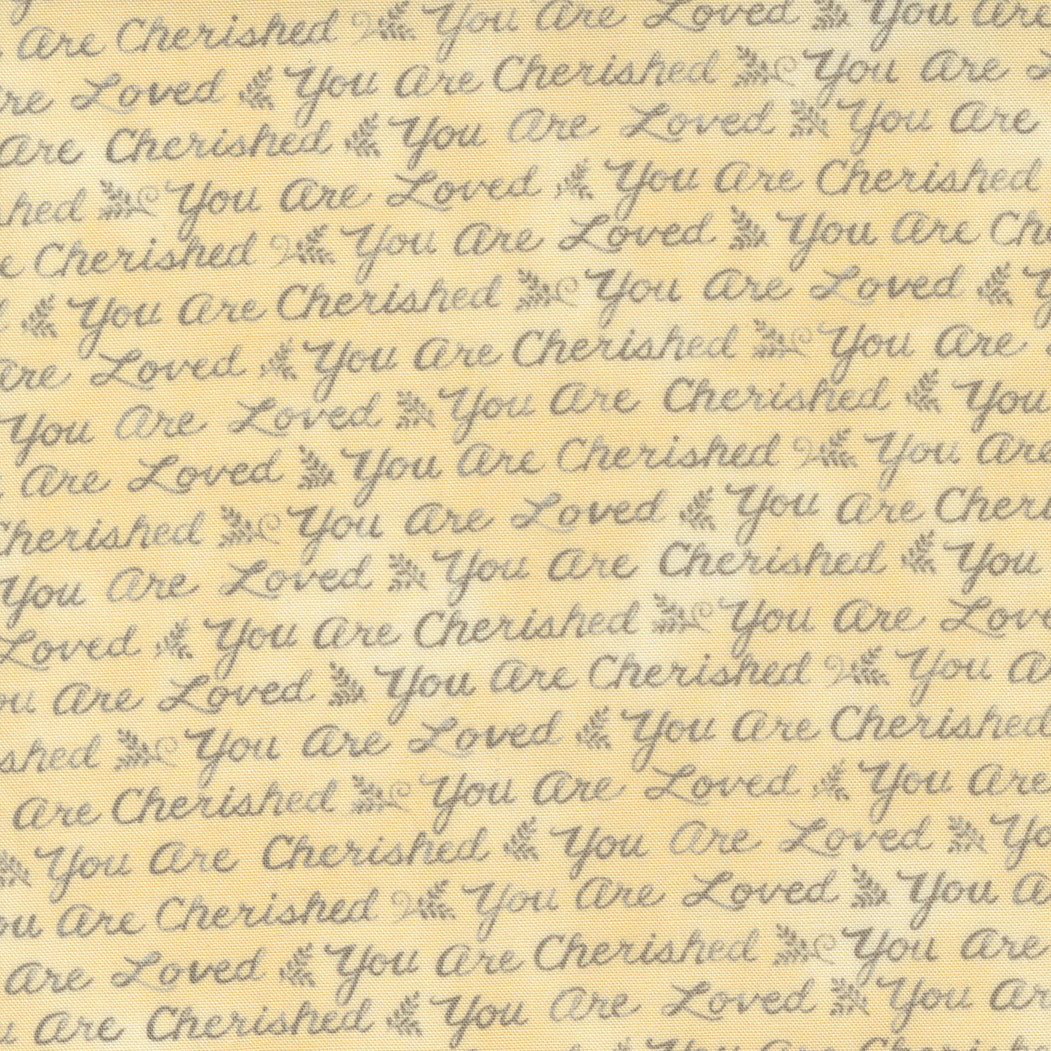 Are Cherished You Are Loved You Are
Are Loved You Are Cherished You Are
Are Cherished You Are Loved You Are
You Are Loved You Are Cherished
Cherished You Are Loved You Are
You Are Cherished You Are Loved
Are Loved You Are Cherished You Are
You Are Loved You Are Cherished You
Are Loved You Are Cherished You Are
Cherished You Are Loved You Are
You Are Loved You Are Cherished You
Loved You Are Cherished You Are
Are Loved You Are Cherished You
You Are Loved You Are Cherished
Are Cherished You Are Loved You Are
You Are Cherished You Are Loved
Are Cherished You Are Loved You
Are Loved You Are Cherished You Are
Are Cherished You Are Loved You